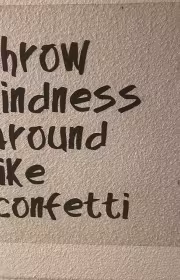 hrow
indness
around
ike
confetti